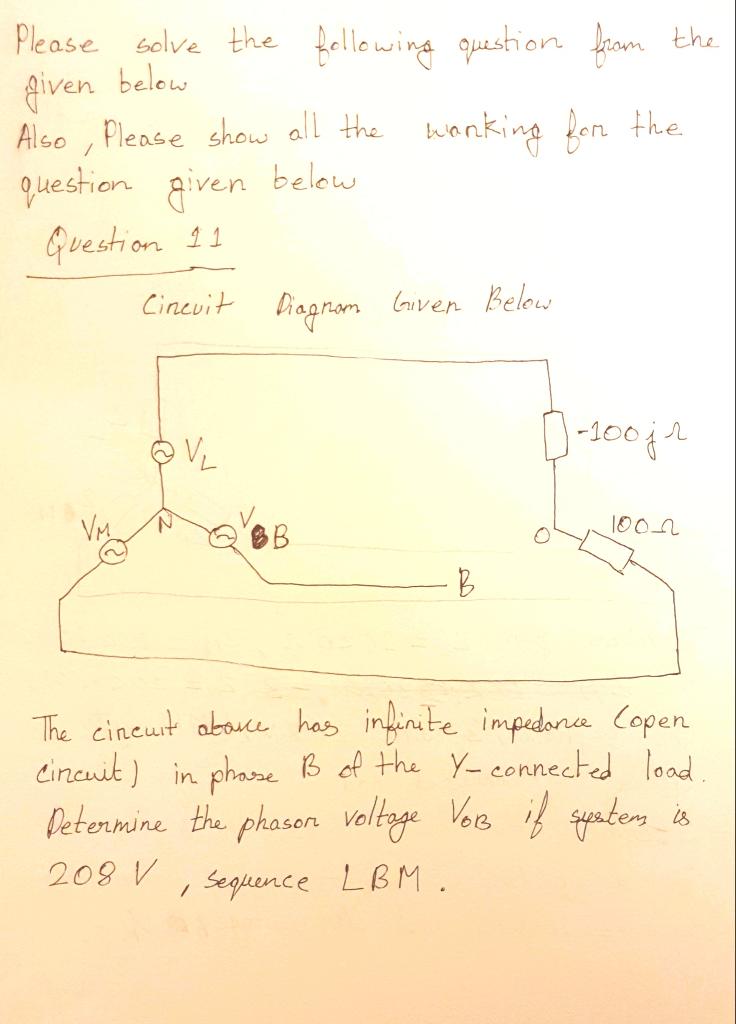 Please solve the following question from the
given below
Also, Please show all the working for the
question given below
Question 11
Circuit Diagram Given Below
-100j Ω
VL
100Ω
VM
N
VB
O
B
The circuit above has infinite impedance (open
circuit) in phase B of the Y-connected load.
Determine the phasor voltage VOB if system is
208 V, sequence LBM.